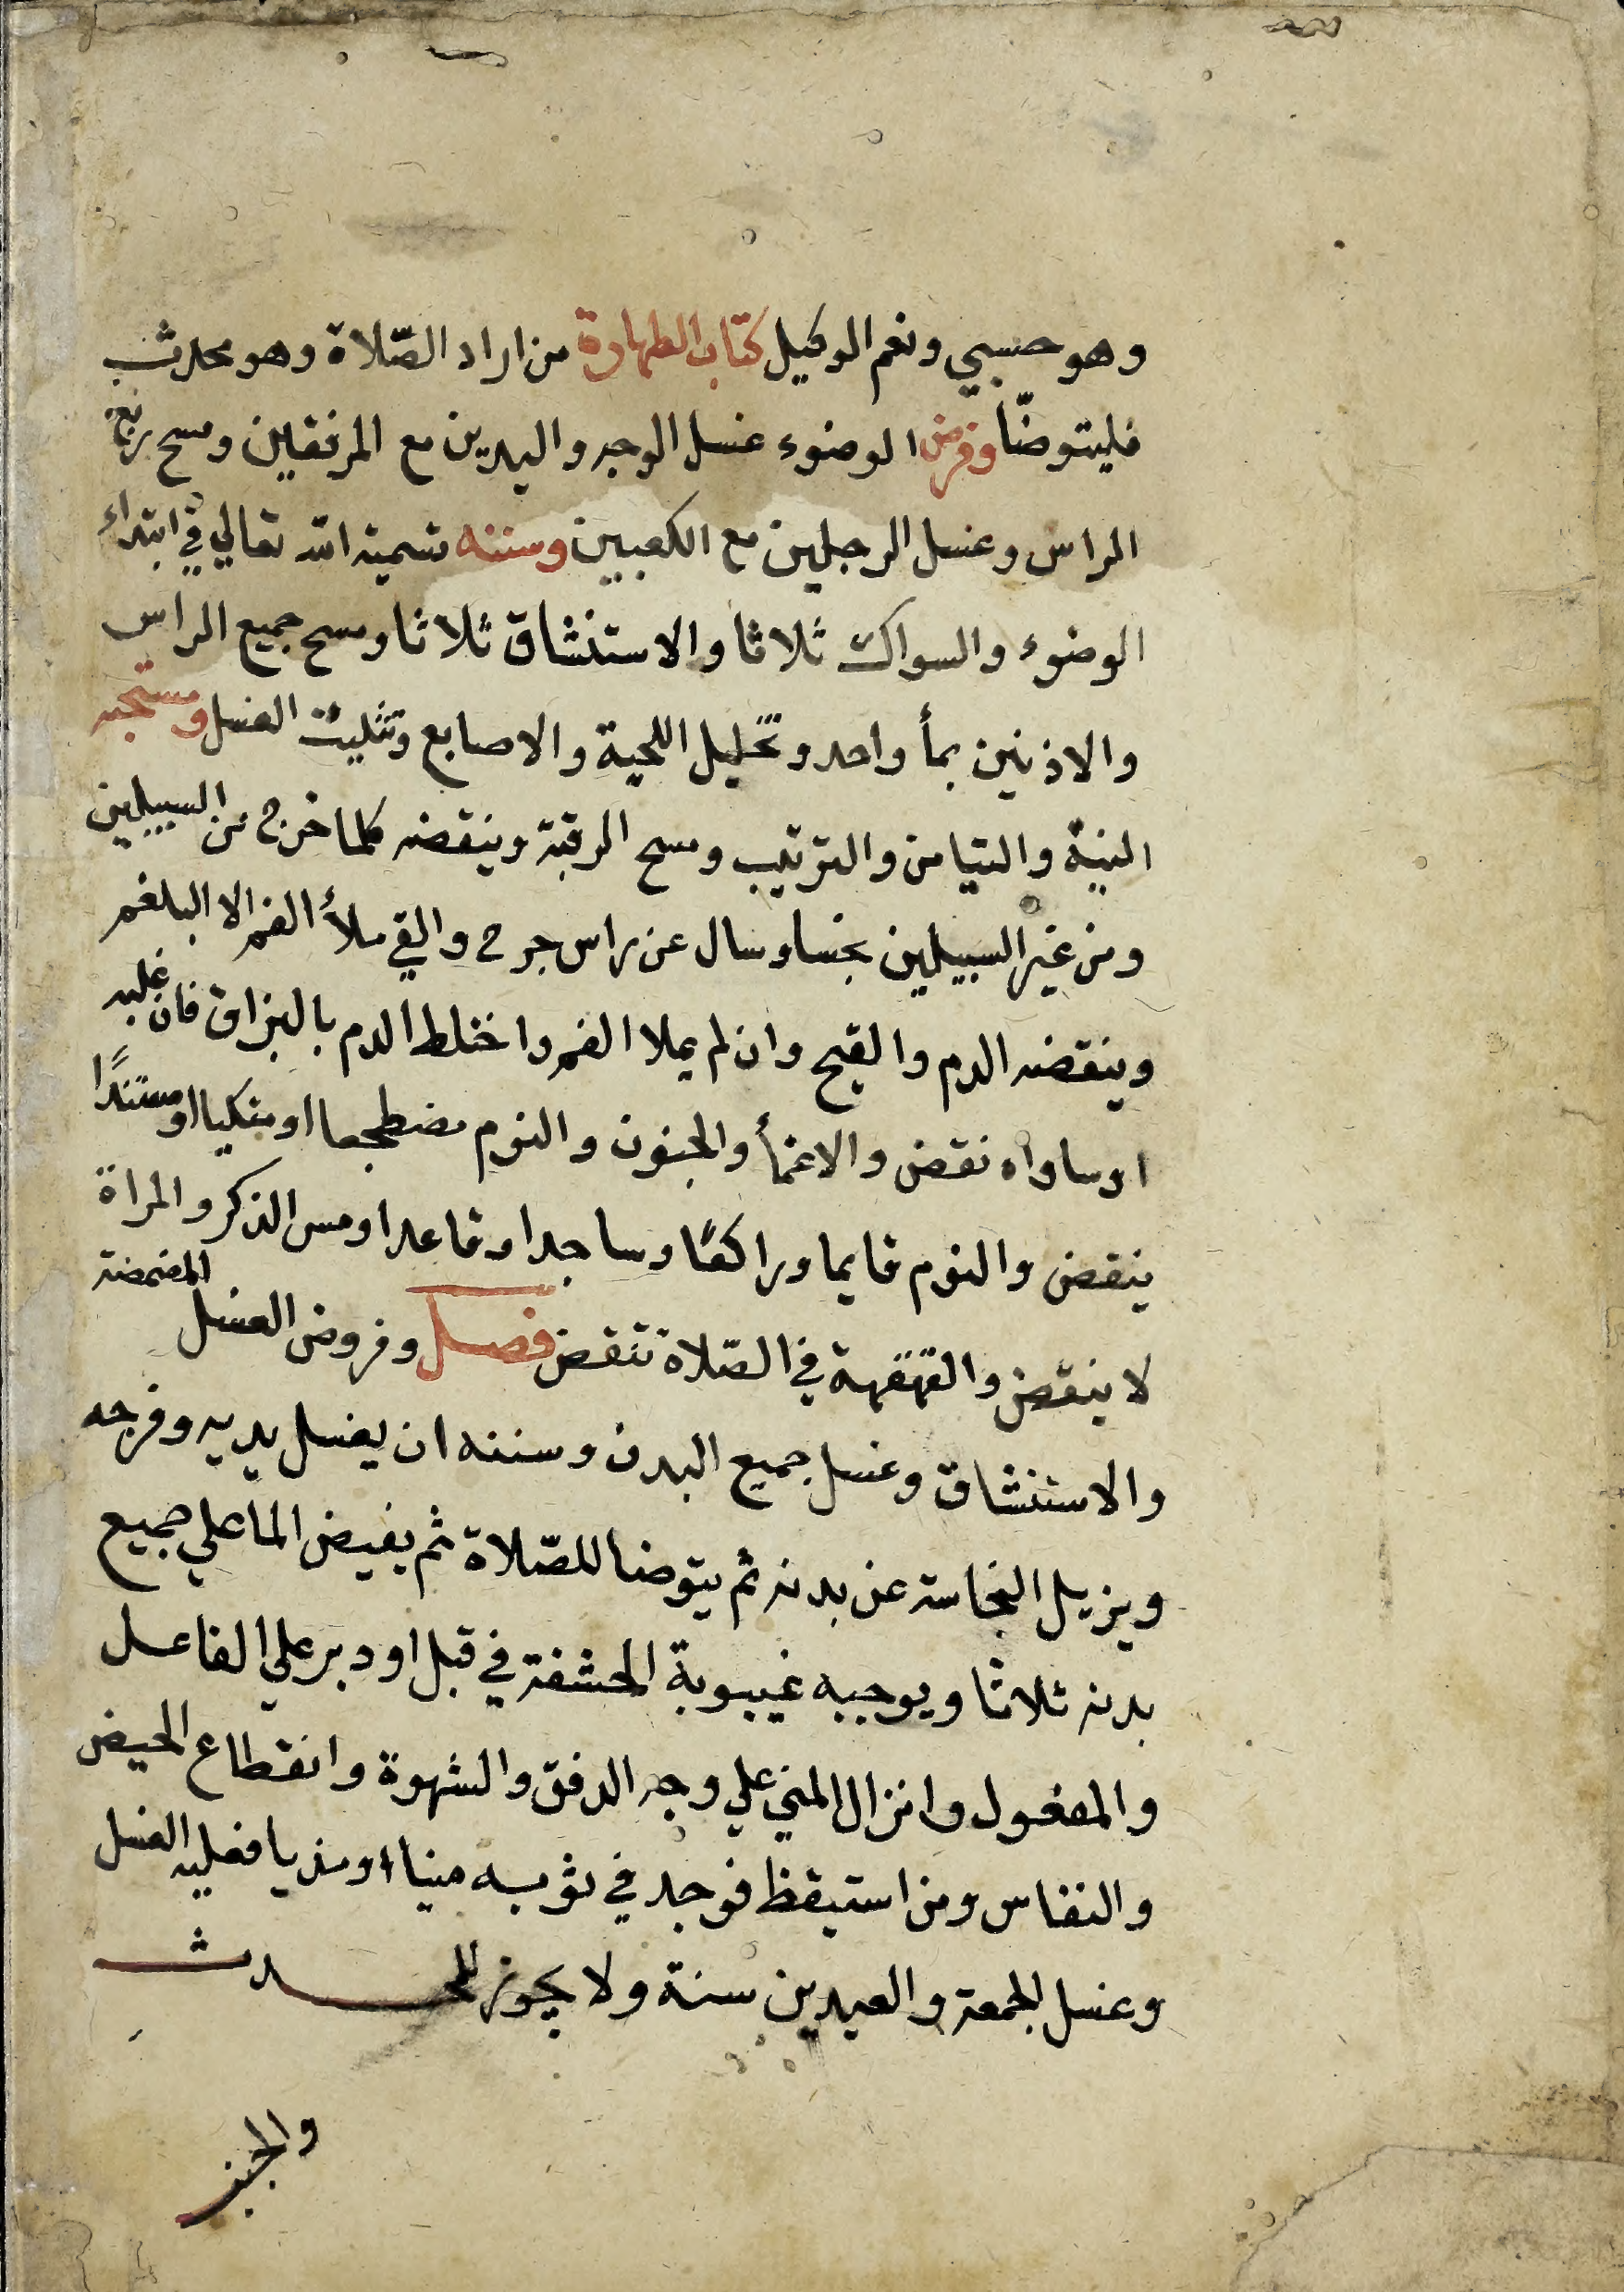 وهو حسبي ونعم الوكيل كتاب الطهارة من اراد الصّلاة وهو محدث
فليتوضّا وفرض الوضوء غسل الوجه واليدين مع المرفقين ومسح ربع
الراس وغسل الرجلين مع الكعبين وسننه تسمية الله تعالي في ابتداء
الوضوء والسواك ثلاثا والاستنشاق ثلاثا ومسح جميع الراس
والاذنين بمأ واحد وتخليل اللحية والاصابع وتثليث الغسل ومستحبه
النية والتيامن والترتيب ومسح الرقبة وينقضه كلما خرج من السبيلين
ومن غير السبيلين نجسا وسال عن راس جرح والقي ملأ الفم الا البلغم
وينقضه الدم والقيح وان لم يملا الفم واختلط الدم بالبزاق فان غلبه
اوساواه نقض والاغمأ والجنون والنوم مضطجعا او متكيا او مستندًا
ينقض والنوم قايما وراكعًا وساجدا وقاعدا ومس الذكر والمراة
لا ينقض والقهقهة في الصّلاة تنقض فصل وفروض الغسل المضمضة
والاستنشاق وغسل جميع البدن وسننه ان يغسل يديه وفرجه
ويزيل النجاسة عن بدنه ثم يتوضا للصّلاة ثم يفيض الما علي جميع
بدنه ثلاثا ويوجبه غيبوبة الحشفة في قبل او دبر علي الفاعل
والمفعول وانزال المني علي وجه الدفق والشهوة وانقطاع الحيض
والنفاس ومن استيقظ فوجد في ثوبه منيا او مذيا فعليه الغسل
وغسل الجمعة والعيدين سنة ولا يجوز للمحدث
والجنب